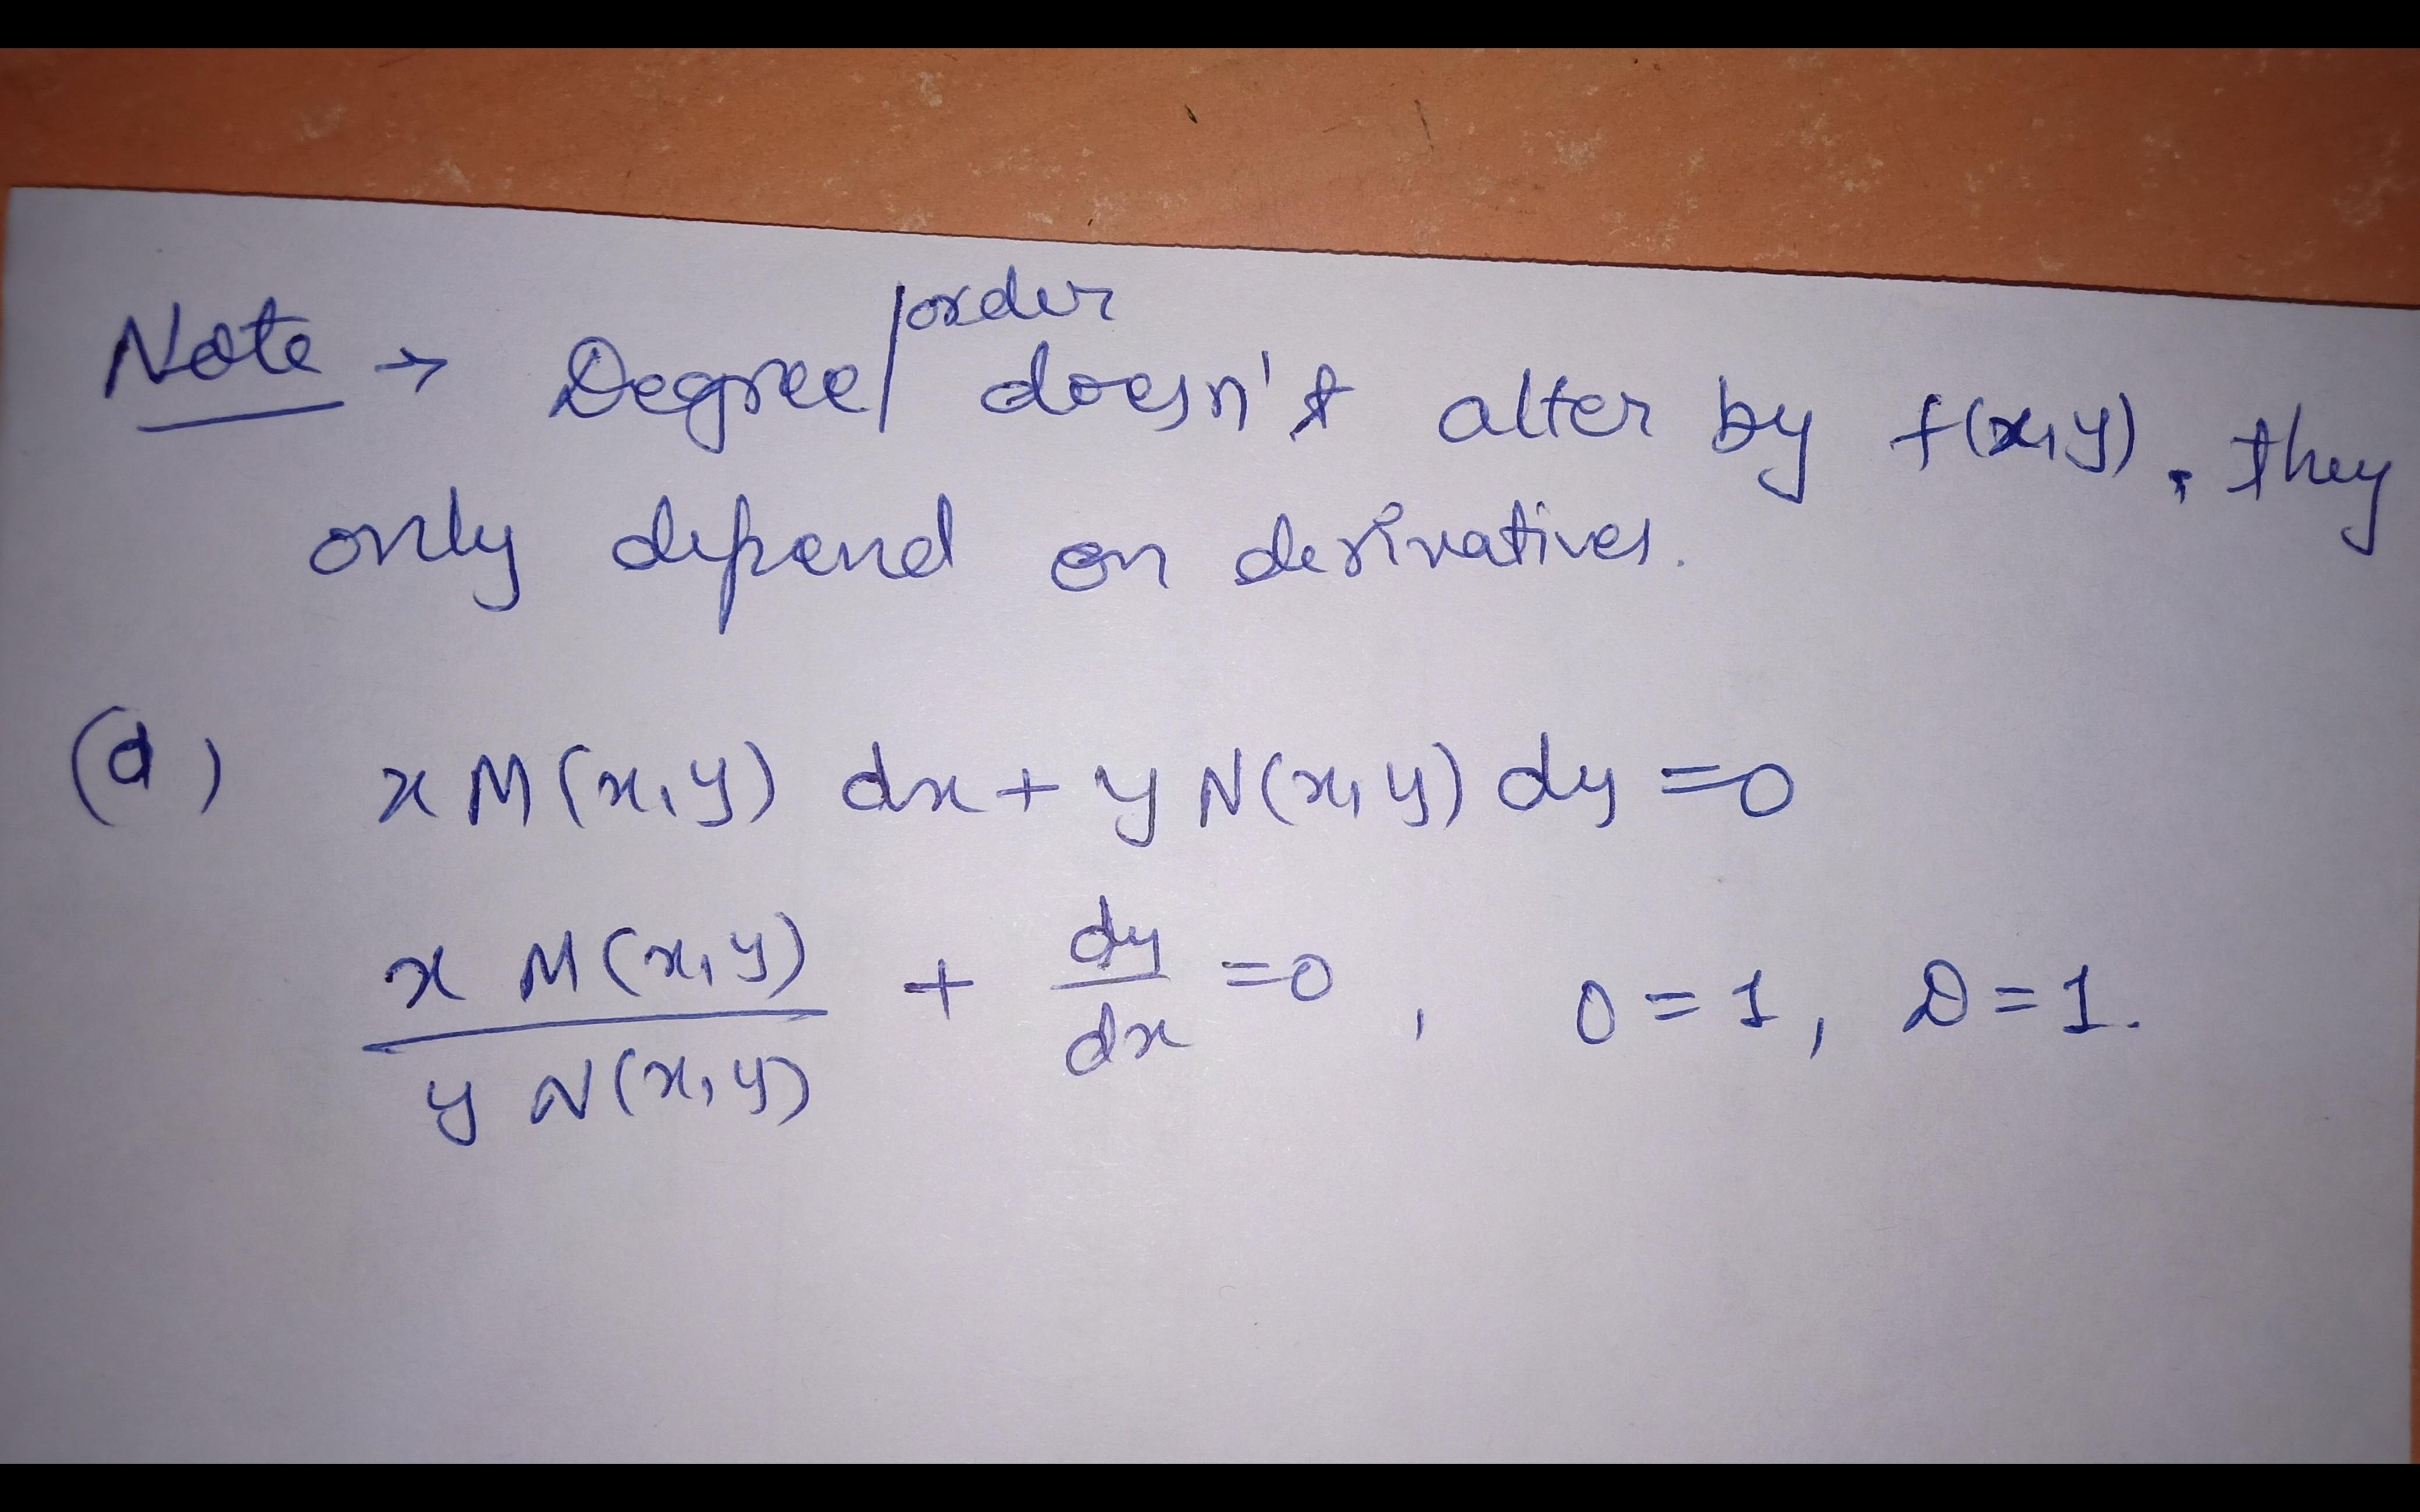 Note → Degree/order doesn't alter by f(x,y), they
only depend on derivatives.
(d) x M(x,y) dx + y N(x,y) dy = 0
x M(x,y) / y N(x,y) + dy/dx = 0, O = 1, D = 1.